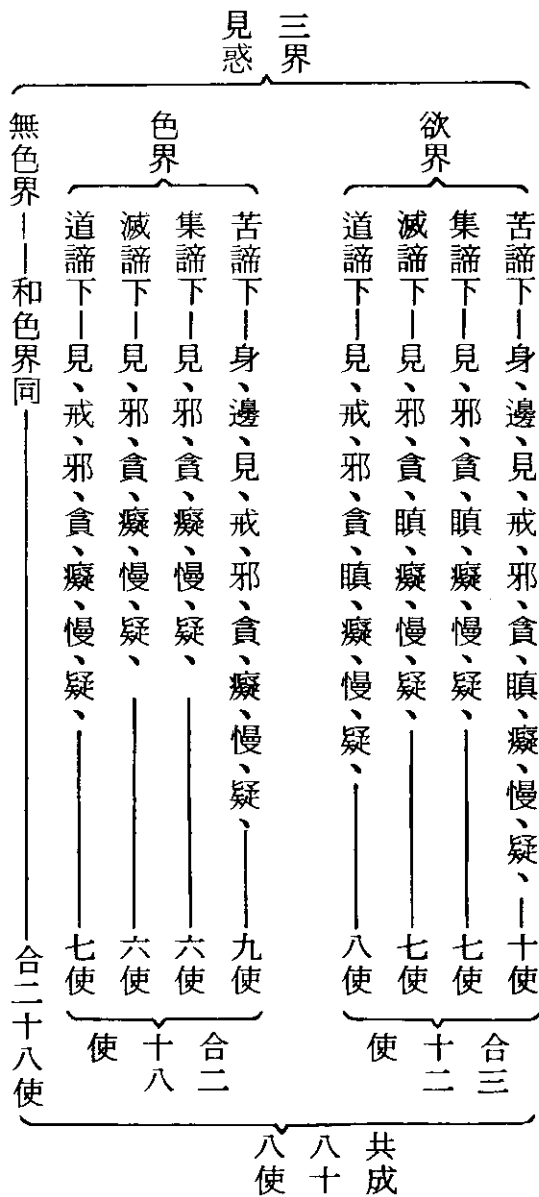 三界
見惑
欲界
苦諦下——身、邊、見、戒、邪、貪、瞋、癡、慢、疑、——十使
集諦下——見、邪、貪、瞋、癡、慢、疑、——七使
滅諦下——見、邪、貪、瞋、癡、慢、疑、——七使
道諦下——見、戒、邪、貪、瞋、癡、慢、疑、——八使
合三
十二
使
色界
苦諦下——身、邊、見、戒、邪、貪、癡、慢、疑、——九使
集諦下——見、邪、貪、癡、慢、疑、——六使
滅諦下——見、邪、貪、癡、慢、疑、——六使
道諦下——見、戒、邪、貪、癡、慢、疑、——七使
合二
十八
使
無色界——和色界同——合二十八使
共成
八十
八使